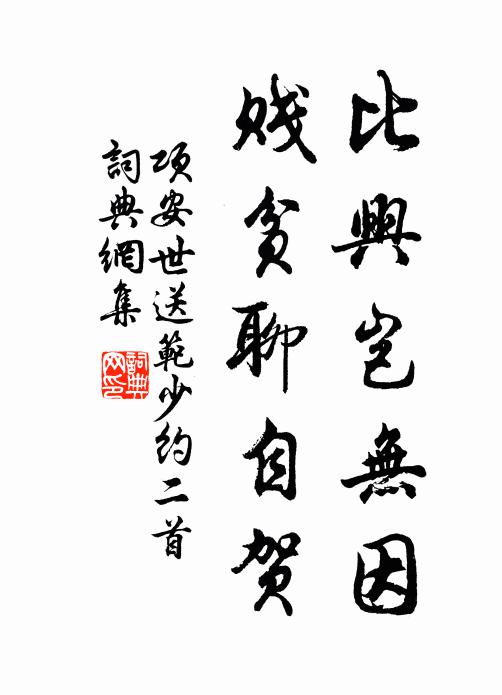 比興豈無因
賤貧聊自賀
項安世送範少約二首
詞典網集
詞典網印